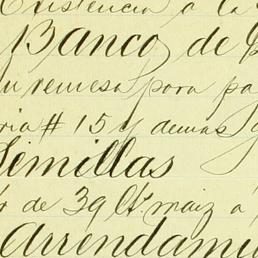 Existencia a la
Banco de
remesa para pa
ria # 15 y demas
Semillas
de 39 Ct. maiz a
Arrendami